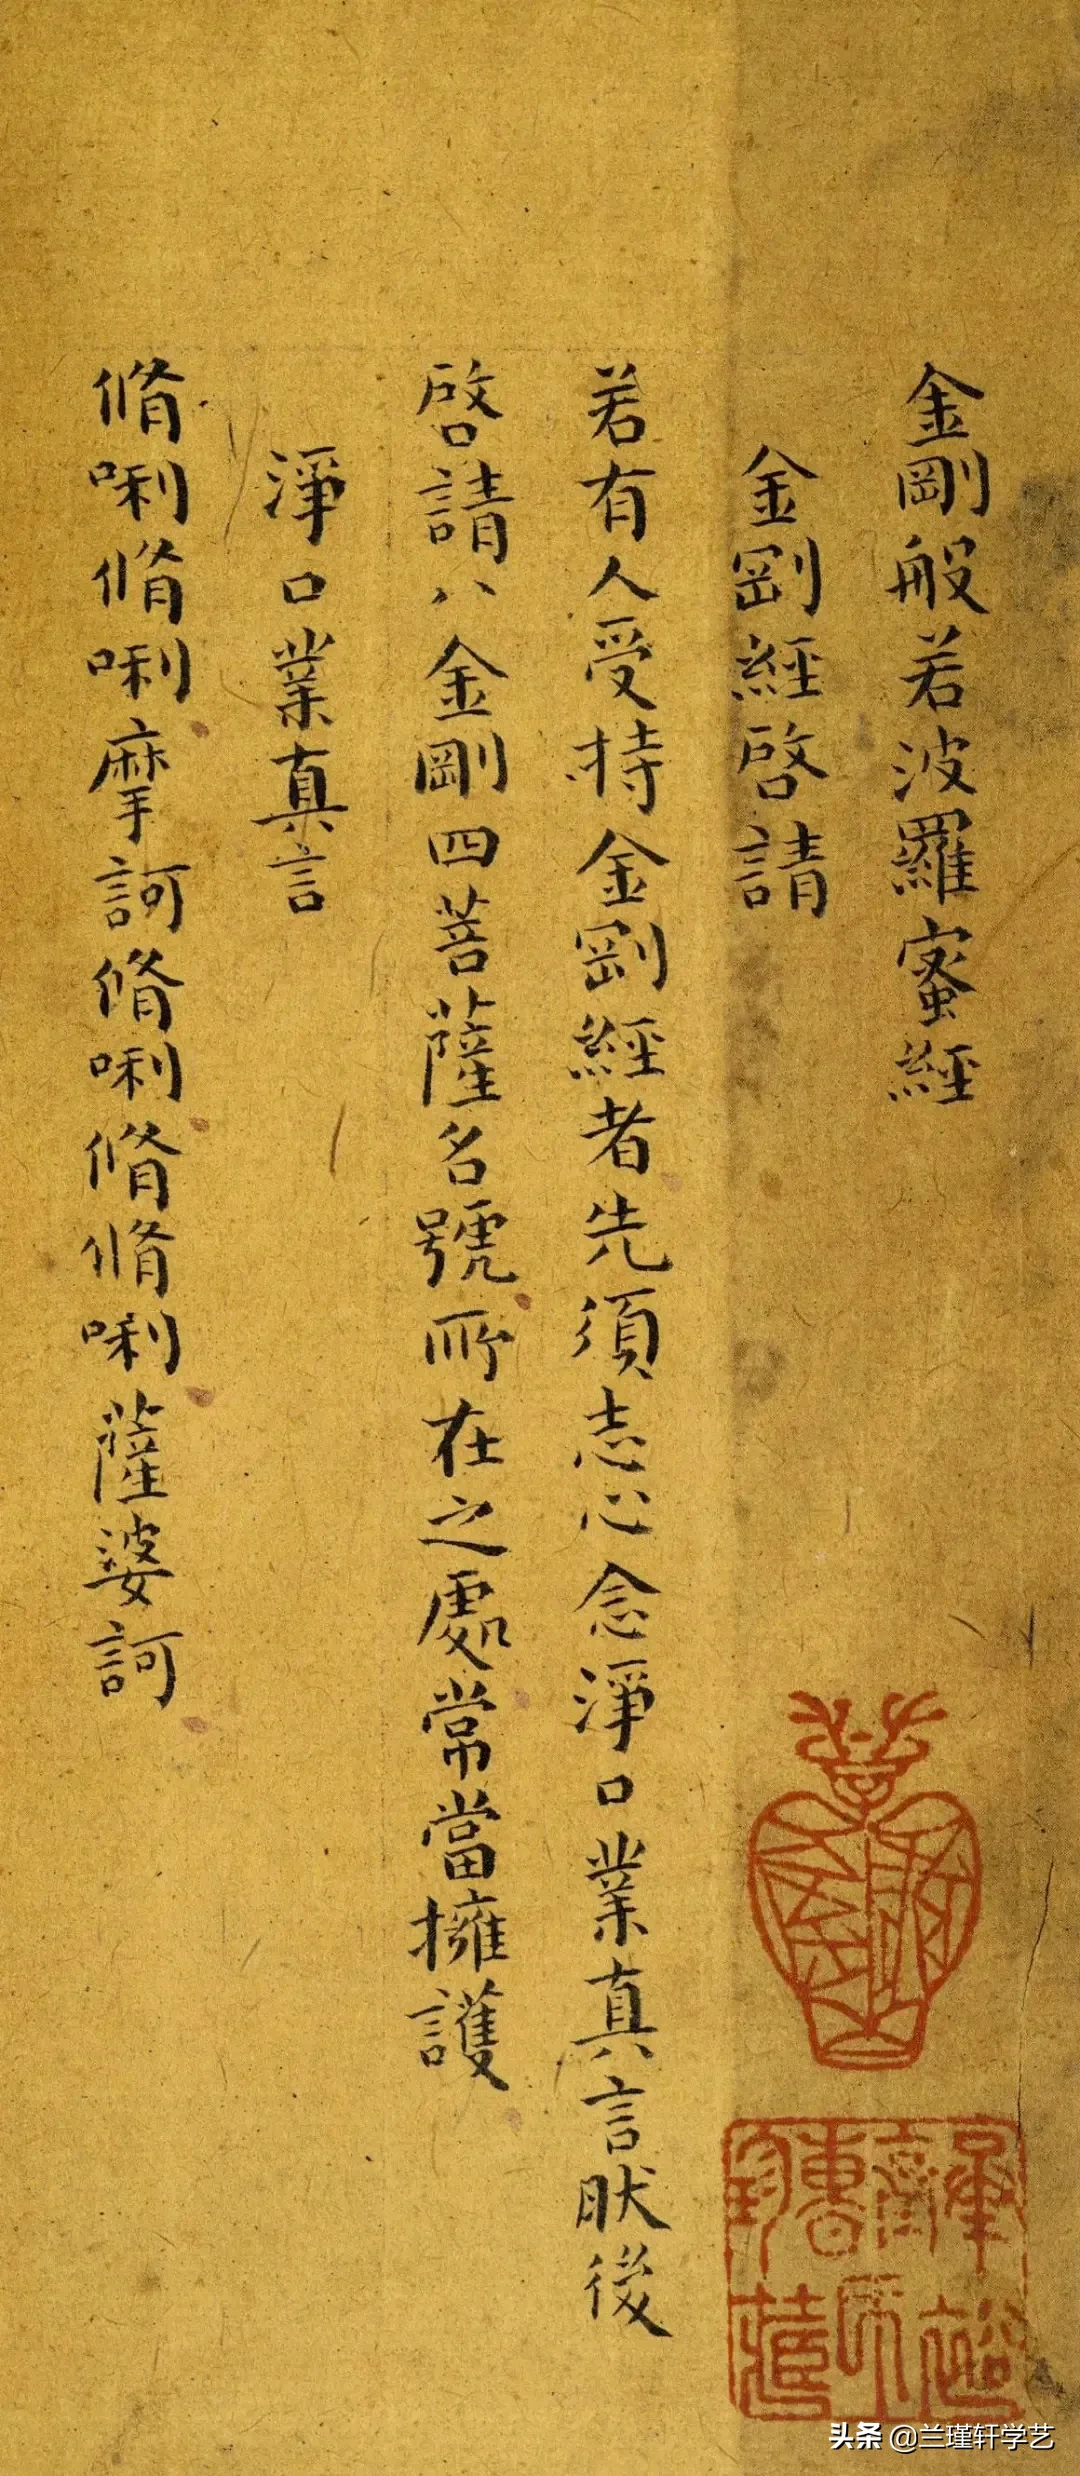 金剛般若波羅蜜經
金剛經啓請
若有人受持金剛經者先須志心念淨口業真言肰後
啓請八金剛四菩薩名號所在之處常當擁護
淨口業真言
脩唎脩唎摩訶脩唎脩脩唎薩婆訶
头条 @兰瑾轩学艺